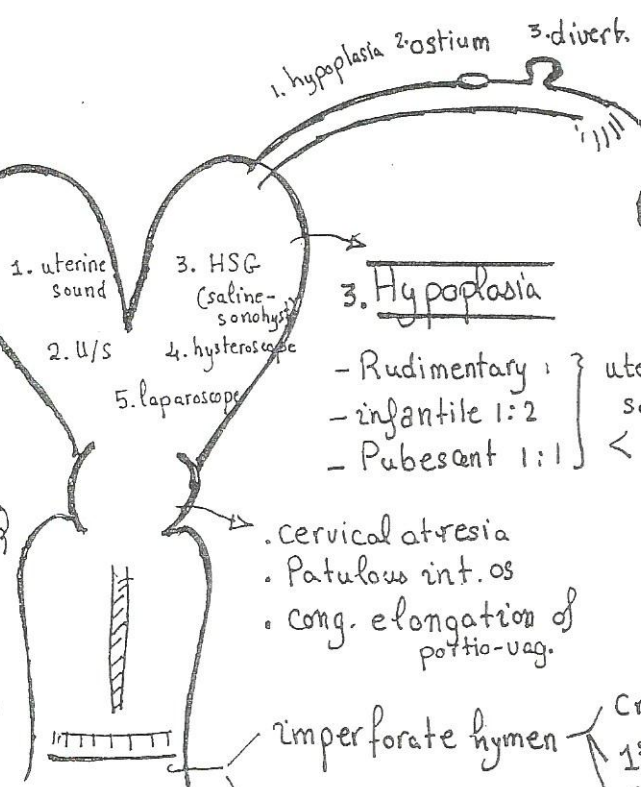 1. hypoplasia 2. ostium 3. divert.
1. uterine
sound
2. U/S
3. HSG
(saline-
sonohyst)
4. hysteroscope
5. laparoscope
3. Hypoplasia
- Rudimentary :
- infantile 1:2
- Pubescent 1:1
<
. cervical atresia
. Patulous int. os
. cong. elongation of
portio-vag.
imperforate hymen